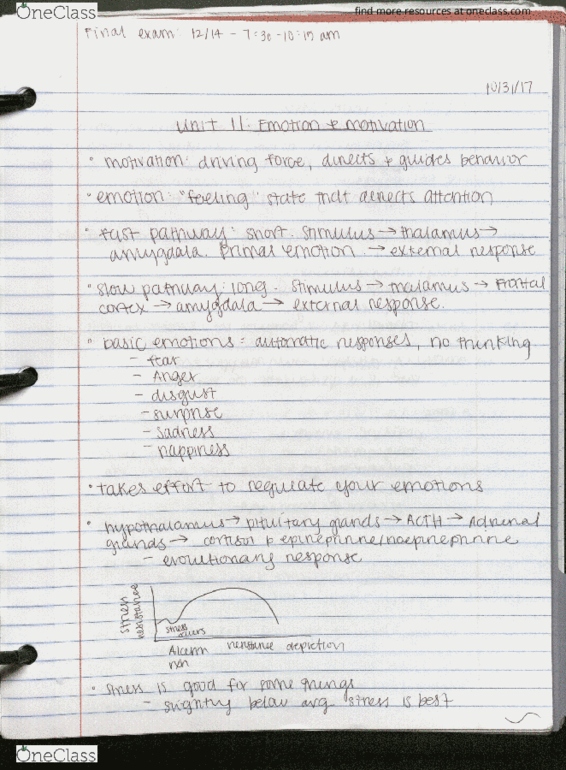 OneClass
find more resources at oneclass.com
Final exam: 12/14 - 7:30 - 10:15 am
10/31/17
Unit 11: Emotion + motivation
• motivation: driving force, directs + guides behavior
• emotion: "feeling" state that directs attention
• fast pathway: short. stimulus → thalamus →
amygdala. primal emotion → external response
• slow pathway: long. stimulus → thalamus → frontal
cortex → amygdala → external response.
• basic emotions = automatic responses, no thinking
- fear
- Anger
- disgust
- surprise
- sadness
- happiness
• takes effort to regulate your emotions
• hypothalamus → pituitary glands → ACTH → Adrenal
glands → cortisol + epinephrine/norepinephrine
- evolutionary response
stress
resistance
stress
occurs
Alarm resistance depletion
rxn
• stress is good for some things
- slightly below avg stress is best
OneClass
OneClass